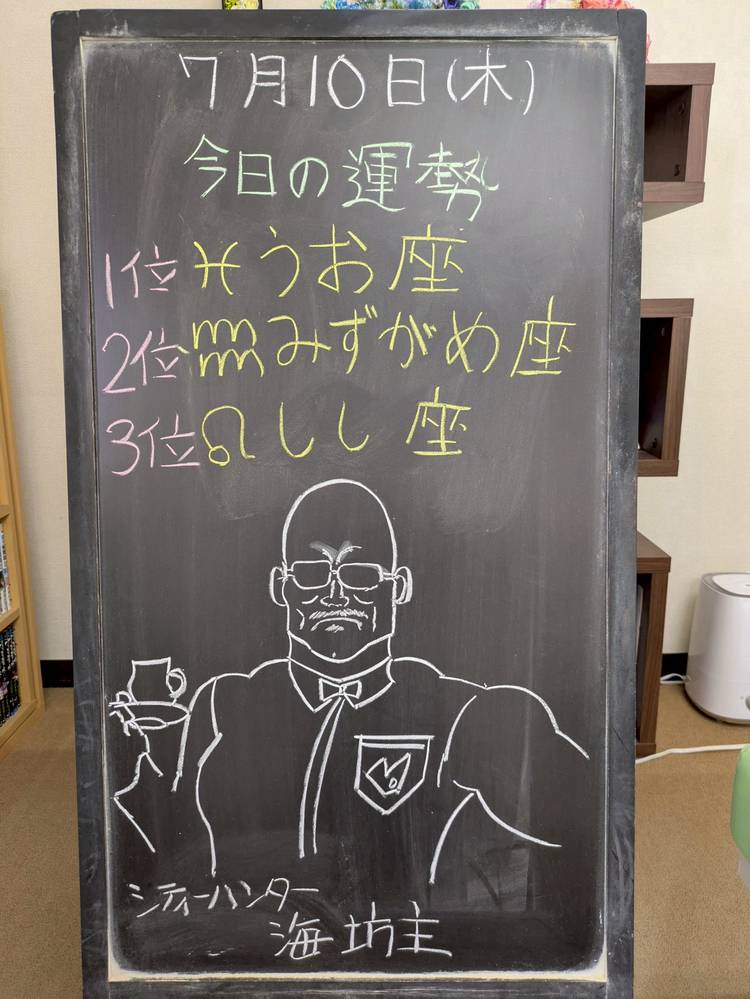 7月10日(木)
今日の運勢
1位♓うお座
2位♒みずがめ座
3位♌しし座
シティーハンター
海坊主